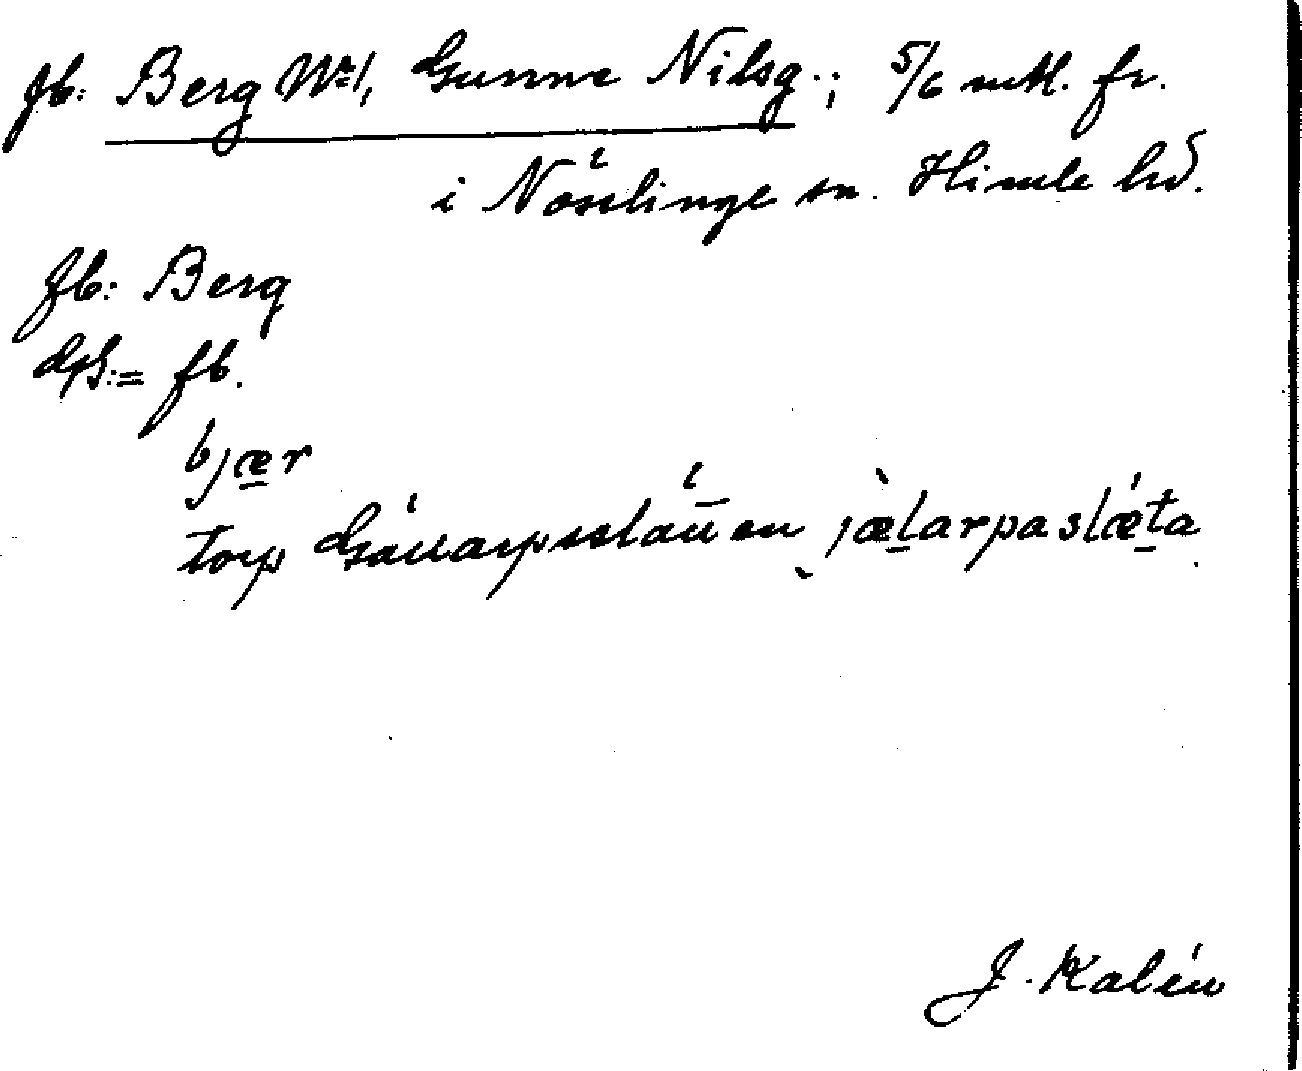 fb: Berg No 1, Gunne Nilsg.; 5/6 mtl. fr.
i Nösslinge sn. Himle hd.
fb: Berg
dps: = fb.
bjær
torp jælarpaslæta
J. Kalén